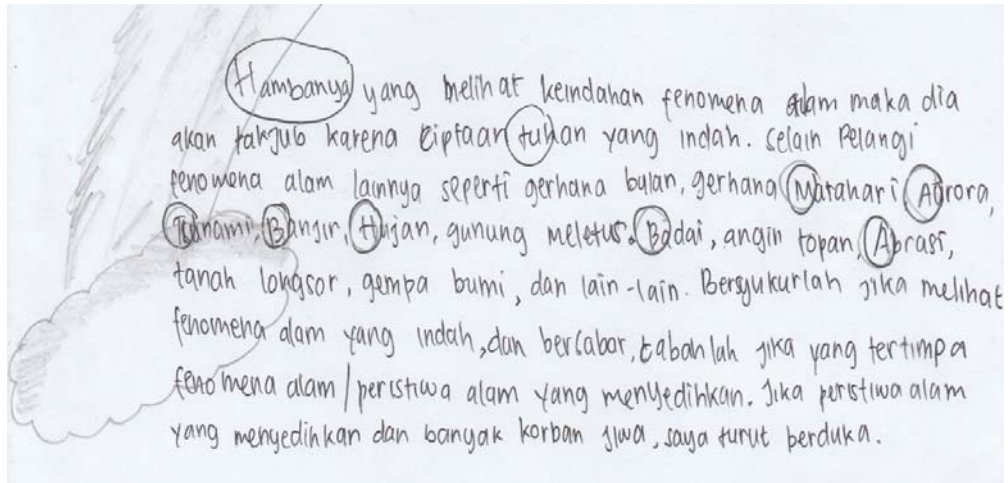 Hambanya yang melihat keindahan fenomena alam maka dia
akan takjub karena Ciptaan tuhan yang indah. Selain Pelangi
fenomena alam lainnya seperti gerhana bulan, gerhana Matahari, Aurora,
Tsunami, Banjir, Hujan, gunung meletus, Badai, angin topan, Abrasi,
tanah longsor, gempa bumi, dan lain-lain. Bersyukurlah jika melihat
fenomena alam yang indah, dan bersabar, tabahlah jika yang tertimpa
fenomena alam / peristiwa alam yang menyedihkan. Jika peristiwa alam
yang menyedihkan dan banyak korban jiwa, saya turut berduka.